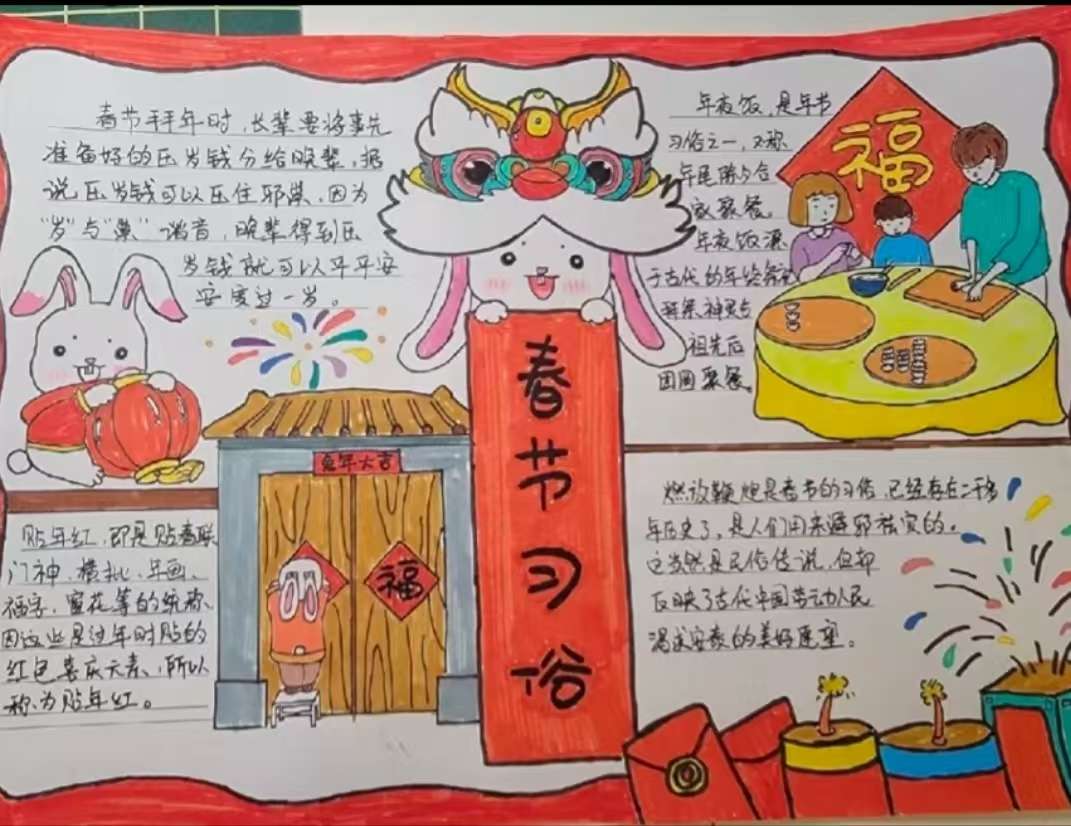 春节拜年时，长辈要将事先
准备好的压岁钱分给晚辈，据
说压岁钱可以压住邪祟，因为
“岁”与“祟”谐音，晚辈得到压
岁钱就可以平平安
安度过一岁。
年夜饭，是年节
习俗之一，又称
年尾阖家聚餐。
年夜饭源
于古代的年终
拜祭神灵与
祖先后
团圆聚餐。
福
春节习俗
兔年大吉
福
贴年红，即是贴春联
门神、横批、年画、
福字、窗花等的统称。
因这些是过年时贴的
红色喜庆元素，所以
称为贴年红。
燃放鞭炮是春节的习俗，已经存在二千多
年历史了，是人们用来避邪祛灾的。
这当然是民俗传说，但却
反映了古代中国劳动人民
渴求安泰的美好愿望。